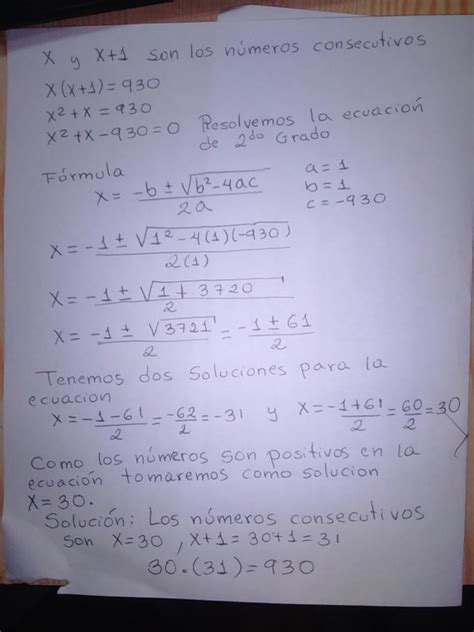 X y X+1 son los números consecutivos
X(X+1)=930
X²+X=930
X²+X-930=0 Resolvemos la ecuación de 2do Grado
Fórmula
X= -b ± √b²-4ac / 2a
a=1
b=1
c=-930
X= -1 ± √1²-4(1)(-930) / 2(1)
X= -1 ± √1+3720 / 2
X= -1 ± √3721 / 2 = -1 ± 61 / 2
Tenemos dos Soluciones para la
ecuacion
X= -1-61 / 2 = -62 / 2 = -31 y X= -1+61 / 2 = 60 / 2 = 30
Como los números son positivos en la
ecuación tomaremos como solucion
X=30.
Solución: Los números consecutivos
son X=30, X+1=30+1=31
30·(31)=930